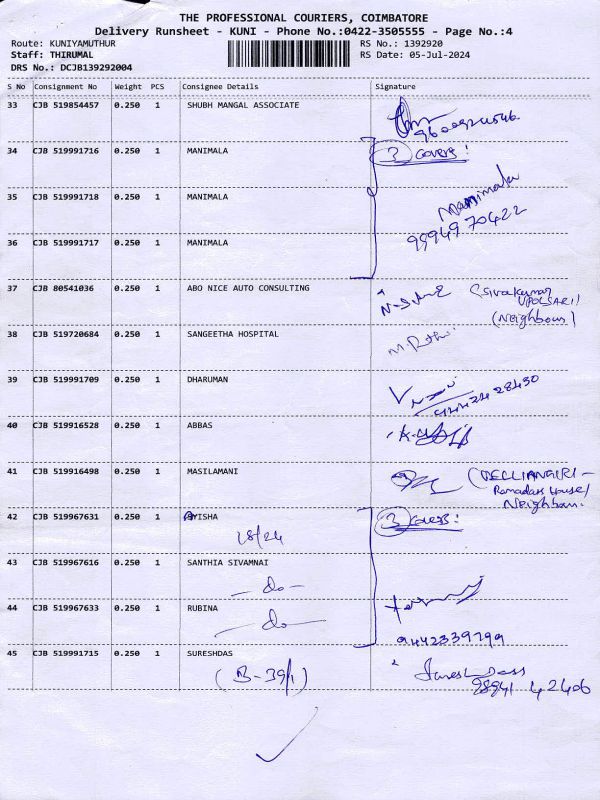 THE PROFESSIONAL COURIERS, COIMBATORE
Delivery Runsheet - KUNI - Phone No.:0422-3505555 - Page No.:4
Route: KUNIYAMUTHUR RS No.: 1392920
Staff: THIRUMAL RS Date: 05-Jul-2024
DRS No.: DCJB139292004
S No Consignment No Weight PCS Consignee Details Signature
33 CJB 519854457 0.250 1 SHUBH MANGAL ASSOCIATE
34 CJB 519991716 0.250 1 MANIMALA 3 covers!
35 CJB 519991718 0.250 1 MANIMALA Manimala
36 CJB 519991717 0.250 1 MANIMALA 9994970422
37 CJB 80541036 0.250 1 ABO NICE AUTO CONSULTING (Sivakumar
(Neighbour)
38 CJB 519720684 0.250 1 SANGEETHA HOSPITAL
39 CJB 519991709 0.250 1 DHARUMAN
40 CJB 519916528 0.250 1 ABBAS
41 CJB 519916498 0.250 1 MASILAMANI
Neighbour.
42 CJB 519967631 0.250 1 AYISHA 3 covers!
18/24
43 CJB 519967616 0.250 1 SANTHIA SIVAMNAI
- do -
44 CJB 519967633 0.250 1 RUBINA
- do - 9442339799
45 CJB 519991715 0.250 1 SURESHDAS Suresh Dass
(B-39/1) 98941 42406